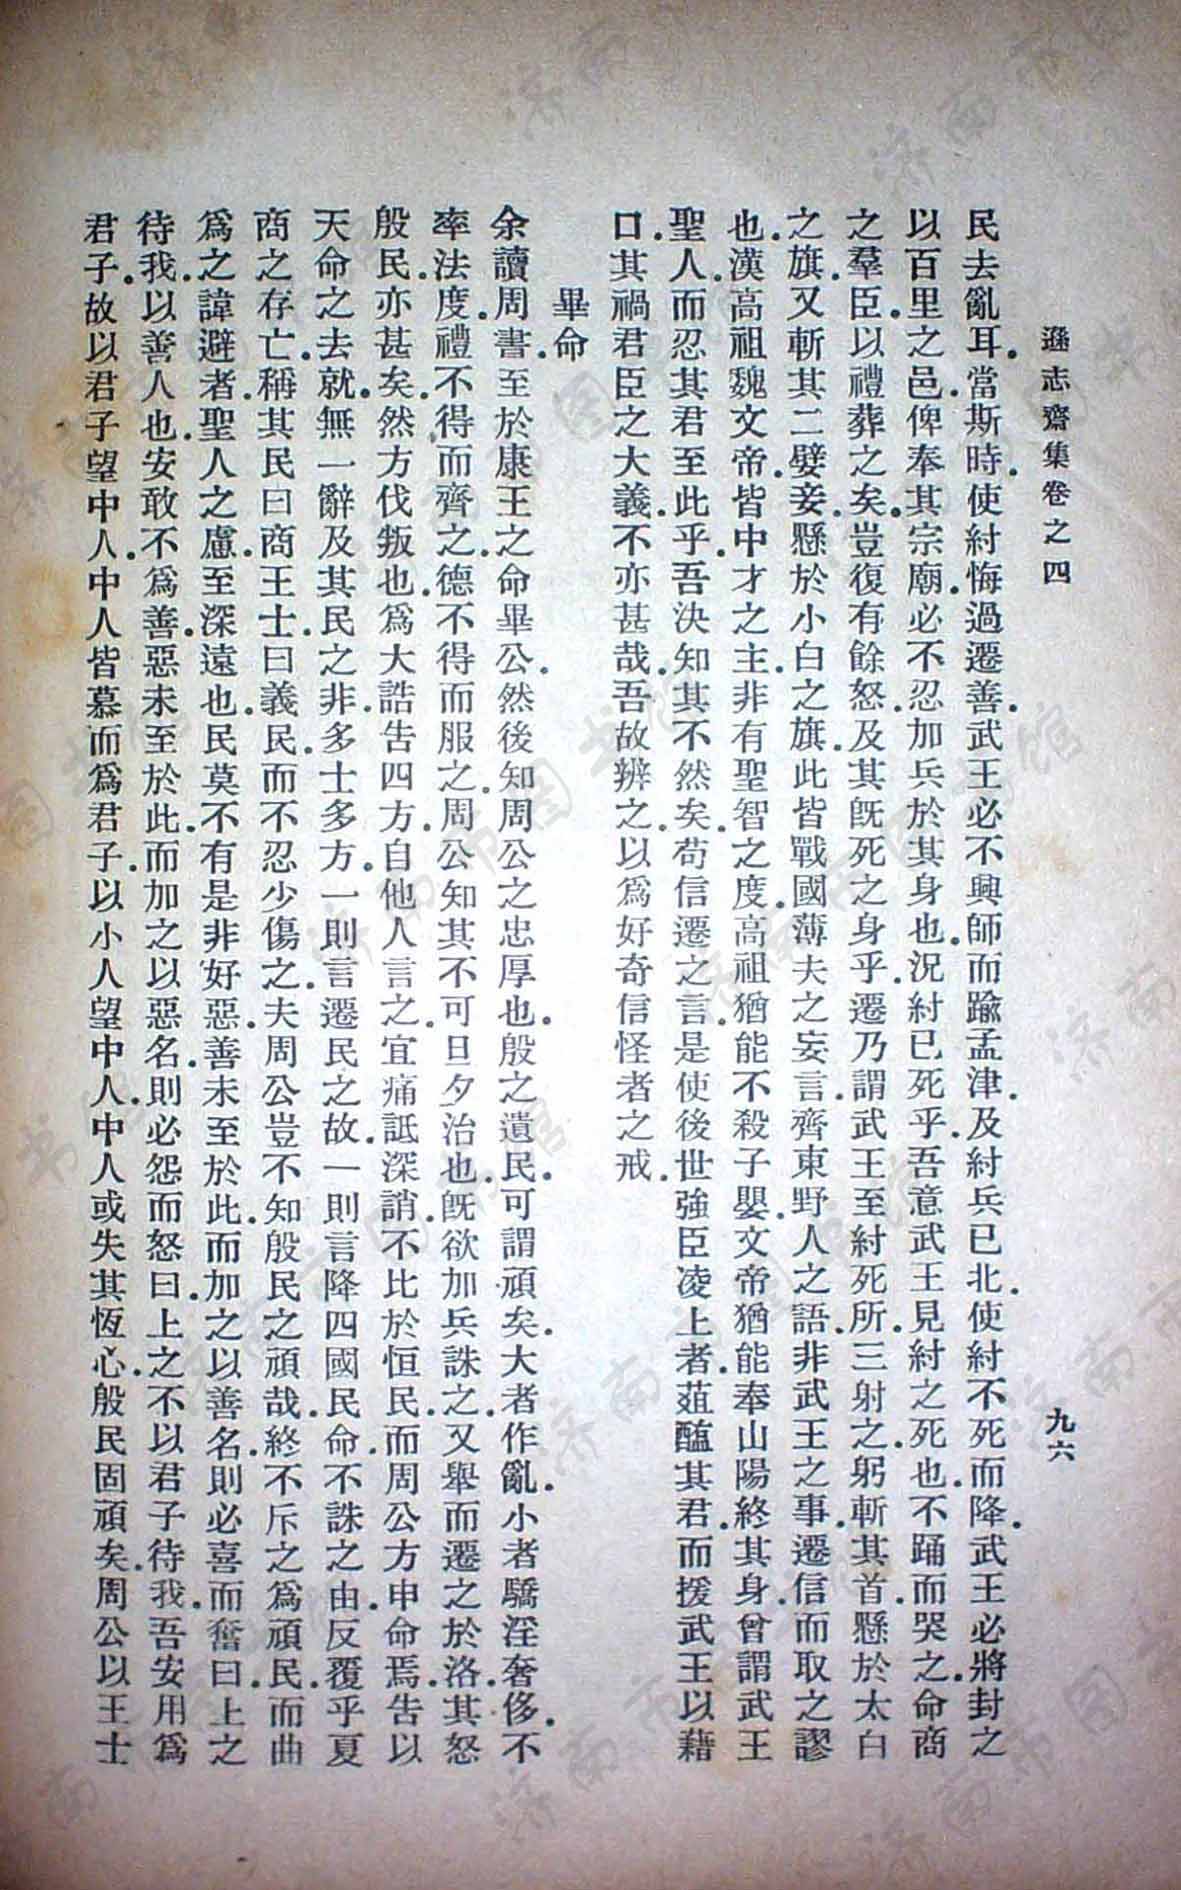 遜志齋集卷之四
九六
民去亂耳．當斯時．使紂悔過遷善．武王必不興師而踰孟津．及紂兵已北．使紂不死而降．武王必將封之
以百里之邑．俾奉其宗廟．必不忍加兵於其身也．況紂已死乎．吾意武王見紂之死也．不踊而哭之．命商
之羣臣．以禮葬之矣．豈復有餘怒．及其旣死之身乎．遷乃謂武王至紂死所．三射之．躬斬其首．懸於太白
之旗．又斬其二嬖妾．懸於小白之旗．此皆戰國薄夫之妄言．齊東野人之語．非武王之事．遷信而取之謬
也．漢高祖魏文帝．皆中才之主．非有聖智之度．高祖猶能不殺子嬰．文帝猶能奉山陽．終其身．曾謂武王
聖人．而忍其君至此乎．吾決知其不然矣．苟信遷之言．是使後世強臣凌上者．葅醢其君．而援武王以藉
口．其禍君臣之大義．不亦甚哉．吾故辨之．以爲好奇信怪者之戒．
畢命
余讀周書．至於康王之命畢公．然後知周公之忠厚也．殷之遺民．可謂頑矣．大者作亂．小者驕淫奢侈．不
率法度．禮不得而齊之．德不得而服之．周公知其不可旦夕治也．旣欲加兵誅之．又舉而遷之於洛．其怒
殷民．亦甚矣．然方伐叛也．爲大誥告四方．自他人言之．宜痛詆深誚．不比於恒民．而周公方申命焉．告以
天命之去就．無一辭及其民之非．多士多方．一則言遷民之故．一則言降四國民命．不誅之由．反覆乎夏
商之存亡．稱其民曰商王士．曰義民．而不忍少傷之．夫周公豈不知殷民之頑哉．終不斥之爲頑民．而曲
爲之諱避者．聖人之慮．至深遠也．民莫不有是非好惡．善未至於此．而加之以善名．則必喜而奮曰．上之
待我．以善人也．安敢不爲善．惡未至於此．而加之以惡名．則必怨而怒曰．上之不以君子待我．吾安用爲
君子．故以君子望中人．中人皆慕而爲君子．以小人望中人．中人或失其恆心．殷民固頑矣．周公以王士